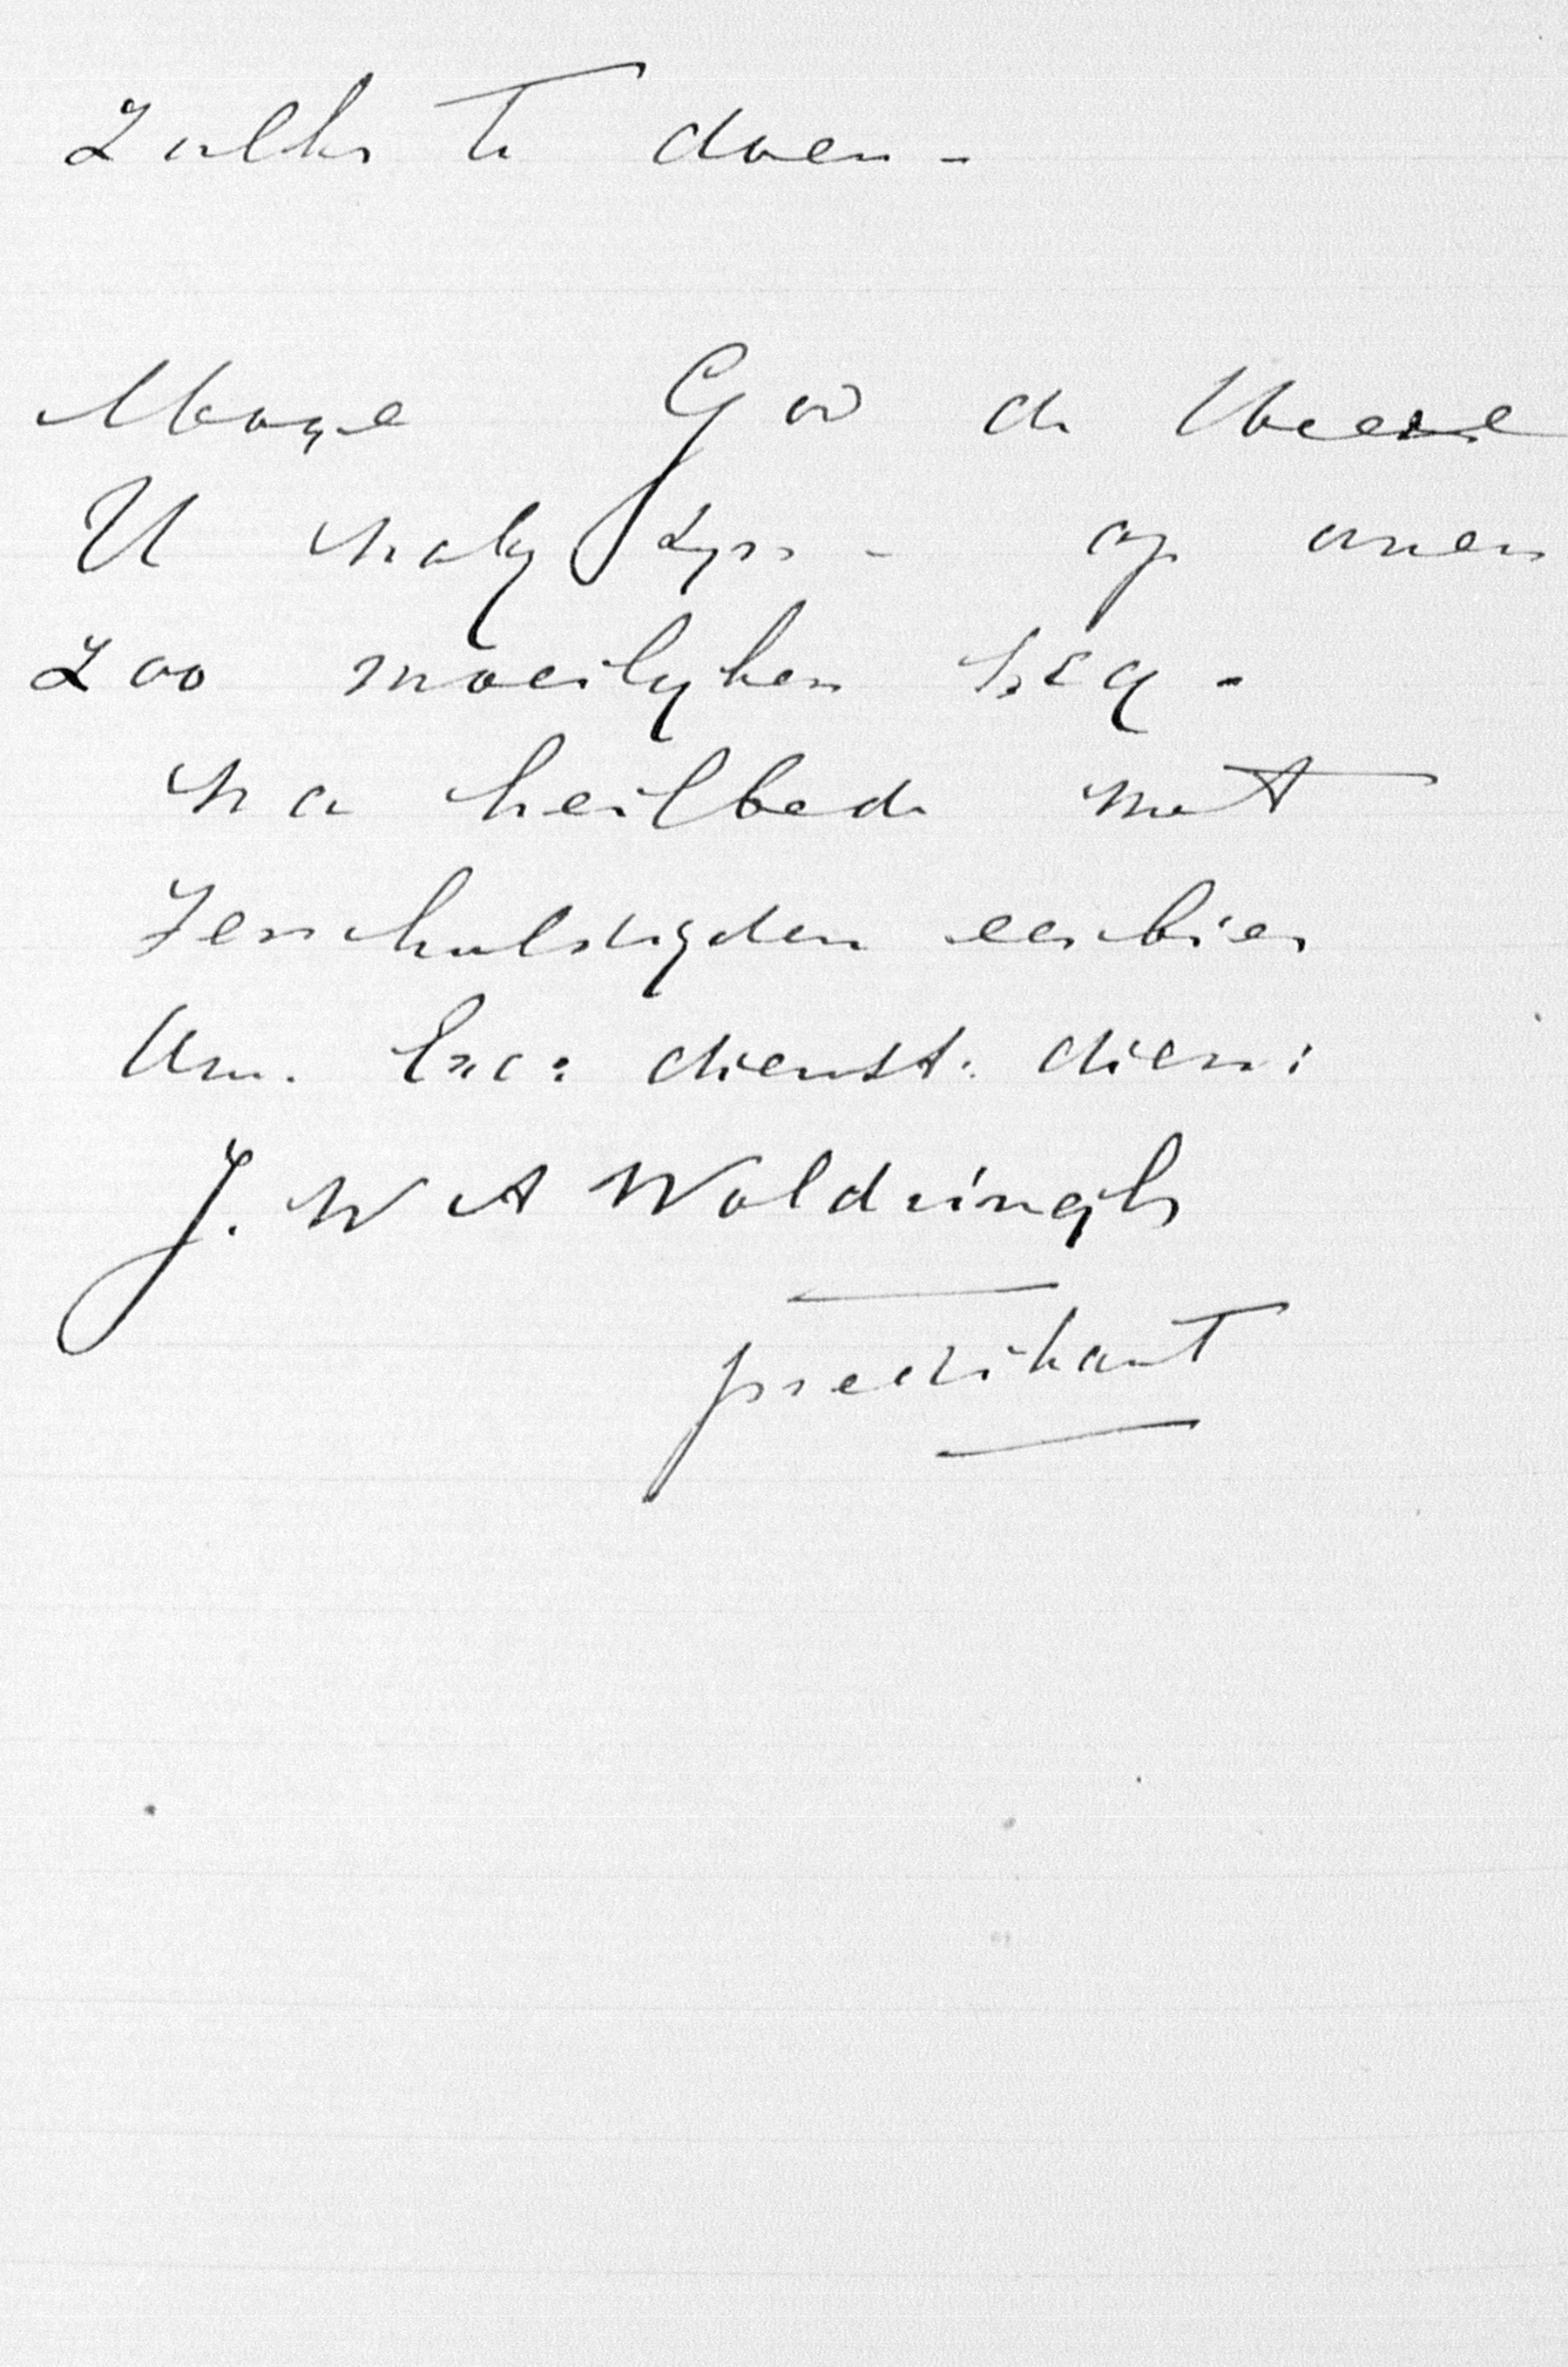 Zulks te doen -
Moge God de Heere
U naby zyn - op uwen
zoo moeilyken weg -
na heilbede met
verschuldigden eerbied
Uw. Exc: dienst: dien:
J. W A Woldringh
predikant